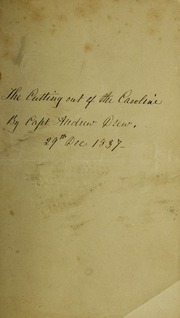 The Cutting out of the Caroline
By Capt Andrew Drew.
29th Dec 1837-